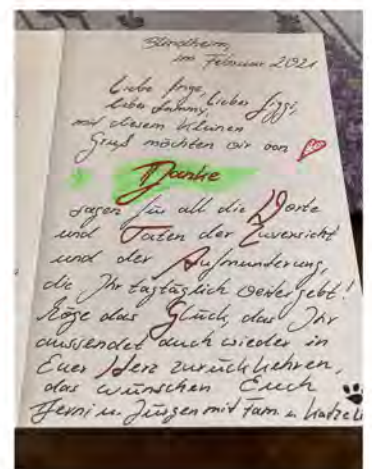 Blindheim,
im Februar 2021
Liebe Inge,
lieber Sammy, lieber Siggi,
mit diesem kleinen
Gruß möchten wir von
Danke
sagen für all die Worte
und Taten der Zuversicht
und der Aufmunderung,
die Ihr tagtäglich weitergebt!
Möge das Glück, das Ihr
aussendet auch wieder in
Euer Herz zurückkehren,
das wünschen Euch
Jürgen mit Fam. u.